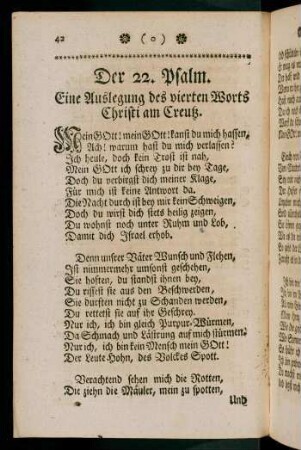 42 ( o )
Der 22. Psalm.
Eine Auslegung des vierten Worts
Christi am Creutz.
Mein GOtt! mein GOtt! kanst du mich hassen,
Ach! warum hast du mich verlassen?
Ich heule, doch kein Trost ist nah,
Mein GOtt ich schrey zu dir bey Tage,
Doch du verbirgst dich meiner Klage,
Für mich ist keine Antwort da.
Die Nacht durch ist bey mir kein Schweigen,
Doch du wirst dich stets heilig zeigen,
Du wohnst noch unter Ruhm und Lob,
Damit dich Israel erhob.
Denn unser Väter Wunsch und Flehen,
Ist nimmermehr umsonst geschehen,
Sie hofften, du standst ihnen bey,
Du rissest sie aus den Beschwerden,
Sie durften nicht zu Schanden werden,
Du rettest sie auf ihr Geschrey.
Nur ich, ich bin gleich Purpur-Würmen,
Da Schmach und Lästrung auf mich stürmen.
Nur ich, ich bin kein Mensch mein GOtt!
Der Leute Hohn, des Volckes Spott.
Verachtend sehen mich die Rotten,
Die ziehn die Mäuler, mein zu spotten,
Und